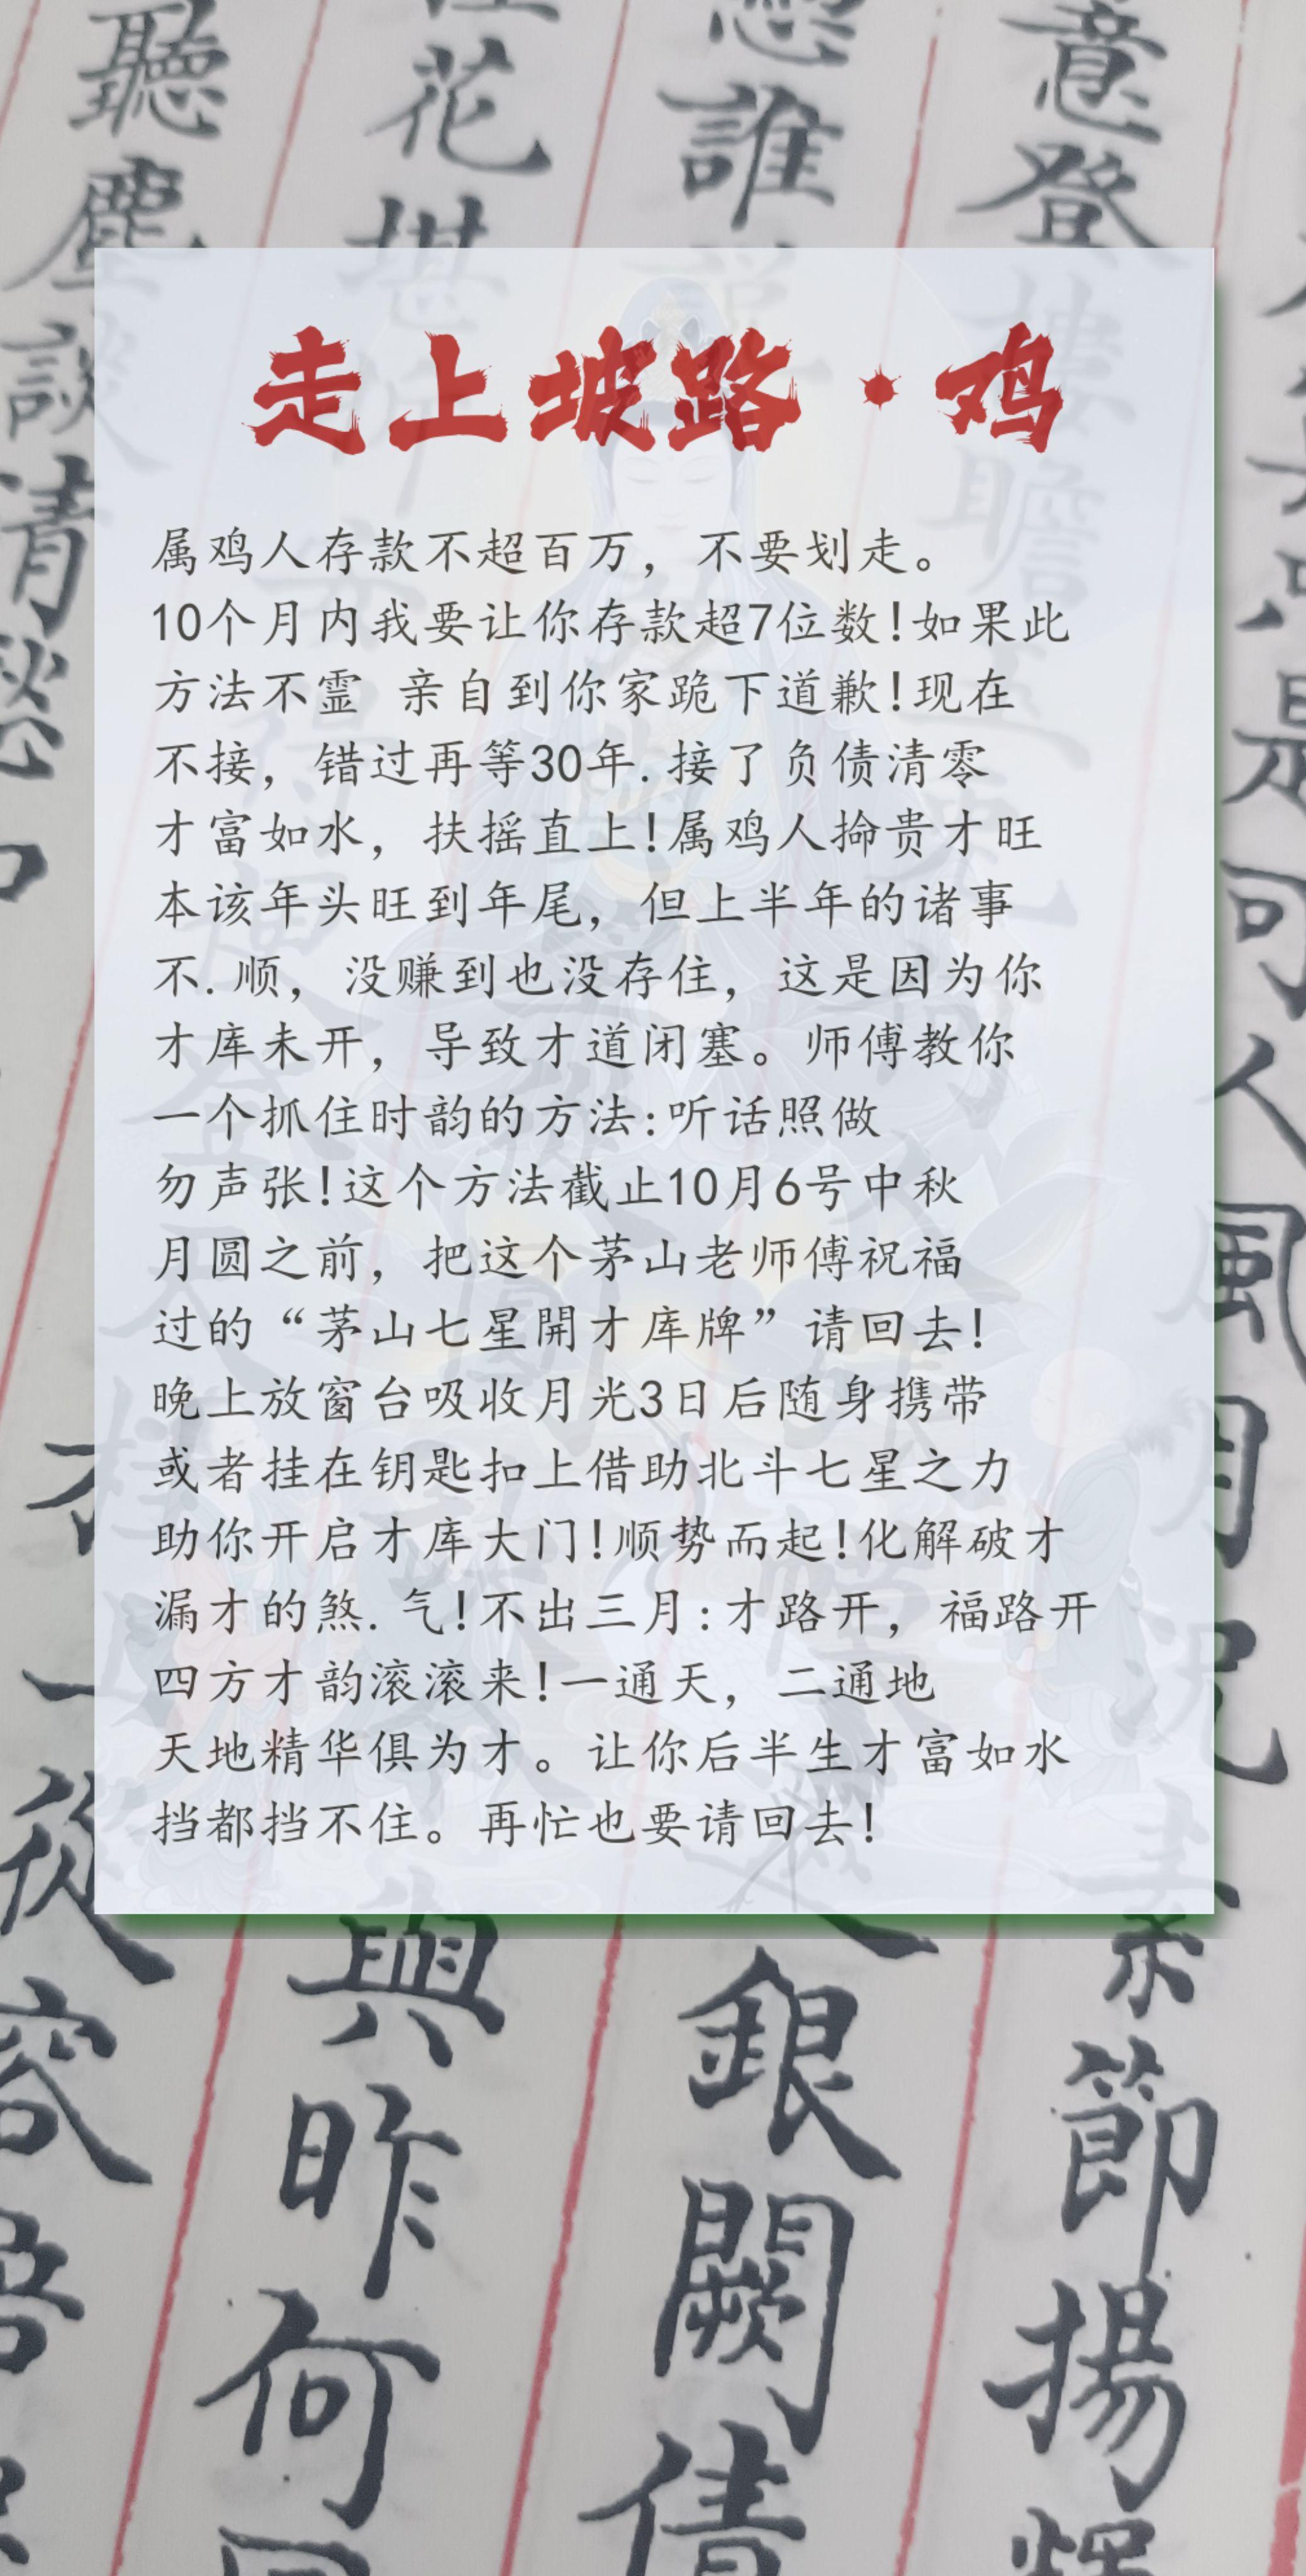 走上坡路·鸡
属鸡人存款不超百万，不要划走。
10个月内我要让你存款超7位数！如果此
方法不霊 亲自到你家跪下道歉！现在
不接，错过再等30年.接了负债清零
才富如水，扶摇直上！属鸡人掵贵才旺
本该年头旺到年尾，但上半年的诸事
不.顺，没赚到也没存住，这是因为你
才库未开，导致才道闭塞。师傅教你
一个抓住时韵的方法:听话照做
勿声张！这个方法截止10月6号中秋
月圆之前，把这个茅山老师傅祝福
过的“茅山七星開才库牌”请回去！
晚上放窗台吸收月光3日后随身携带
或者挂在钥匙扣上借助北斗七星之力
助你开启才库大门！顺势而起！化解破才
漏才的煞.气！不出三月:才路开，福路开
四方才韵滚滚来！一通天，二通地
天地精华俱为才。让你后半生才富如水
挡都挡不住。再忙也要请回去！
意登
誰
花
聽塵談清
是可人風月
素節揚輝
銀闕倩
與昨何
從容